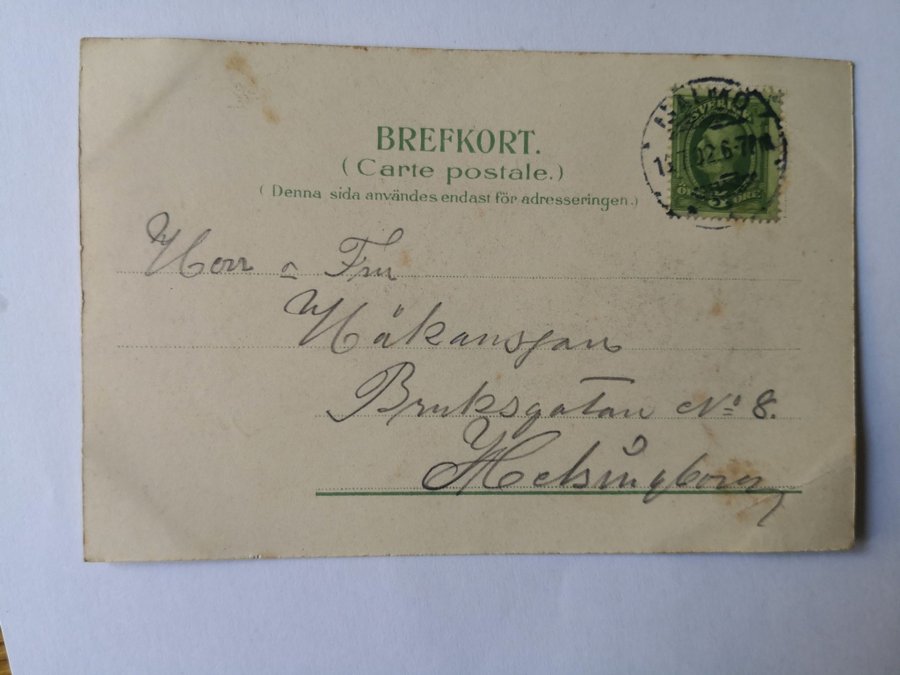 BREFKORT.
(Carte postale.)
(Denna sida användes endast för adresseringen.)
MALMÖ
SVERIGE
02.6-7
Herr o Fru
Håkansson
Bruksgatan No 8.
Helsingborg